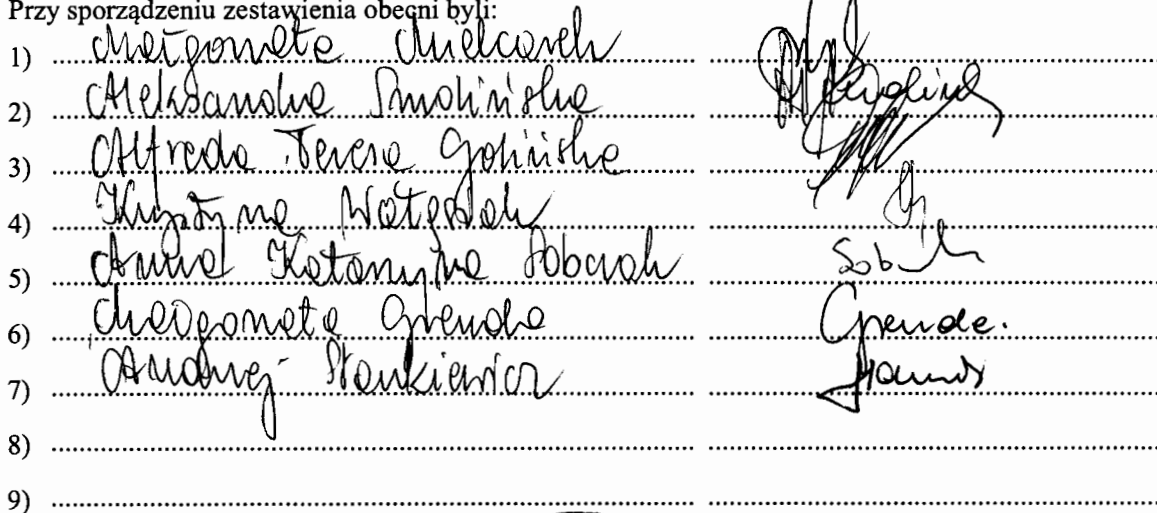 Przy sporządzeniu zestawienia obecni byli:
1) Małgorzata Mielcarek
2) Aleksandra Smolińska
3) Alfreda Teresa Golińska
4) Krystyna
5) Anna Katarzyna Sobczak
6) Małgorzata Grenda Grenda.
7) Andrzej Stankiewicz
8)
9)